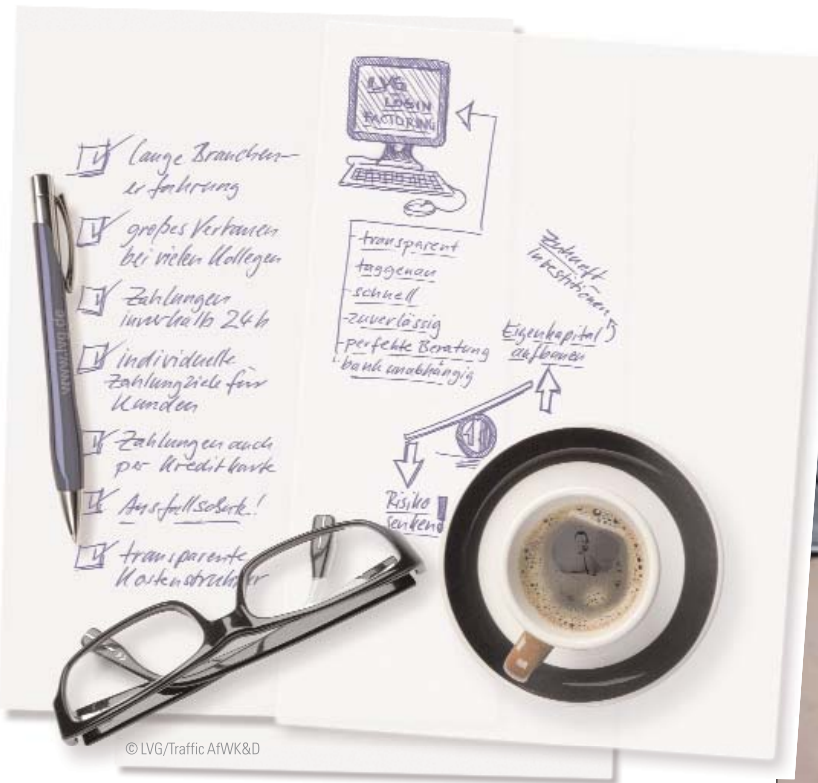 lange Branchen-
erfahrung
großes Vertrauen
bei vielen Kollegen
Zahlungen
innerhalb 24h
individuelle
Zahlungsziele für
Kunden
Zahlungen auch
per Kreditkarte
Ausfallschutz!
transparente
Kostenstruktur
www.lvg.de
LVG
LOGIN
FACTORING
-transparent
taggenau
-schnell
-zuverlässig
-perfekte Beratung
-bankunabhängig
Zukunft
Investitionen
Eigenkapital
aufbauen
Risiko
senken!
© LVG/Traffic AfWK&D